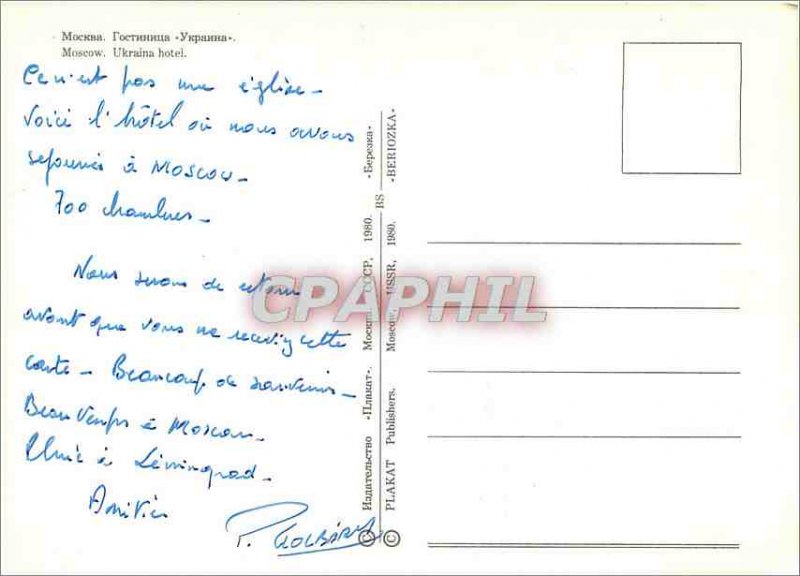 Москва. Гостиница «Украина».
Moscow. Ukraina hotel.
Ce n'est pas une église -
Voici l'hôtel où nous avons
séjournés à Moscow -
700 chambres -
Nous serons de retour
avant que vous ne receviez cette
carte - Beaucoup de souvenirs -
Beau temps à Moscou -
Pluie à Léningrad -
Amitiés
P.
Издательство «Плакат». Москва, СССР, 1980. «Березка»
BS
PLAKAT Publishers. Moscow, USSR, 1980. «BERIOZKA»
© ©
CPAPHIL